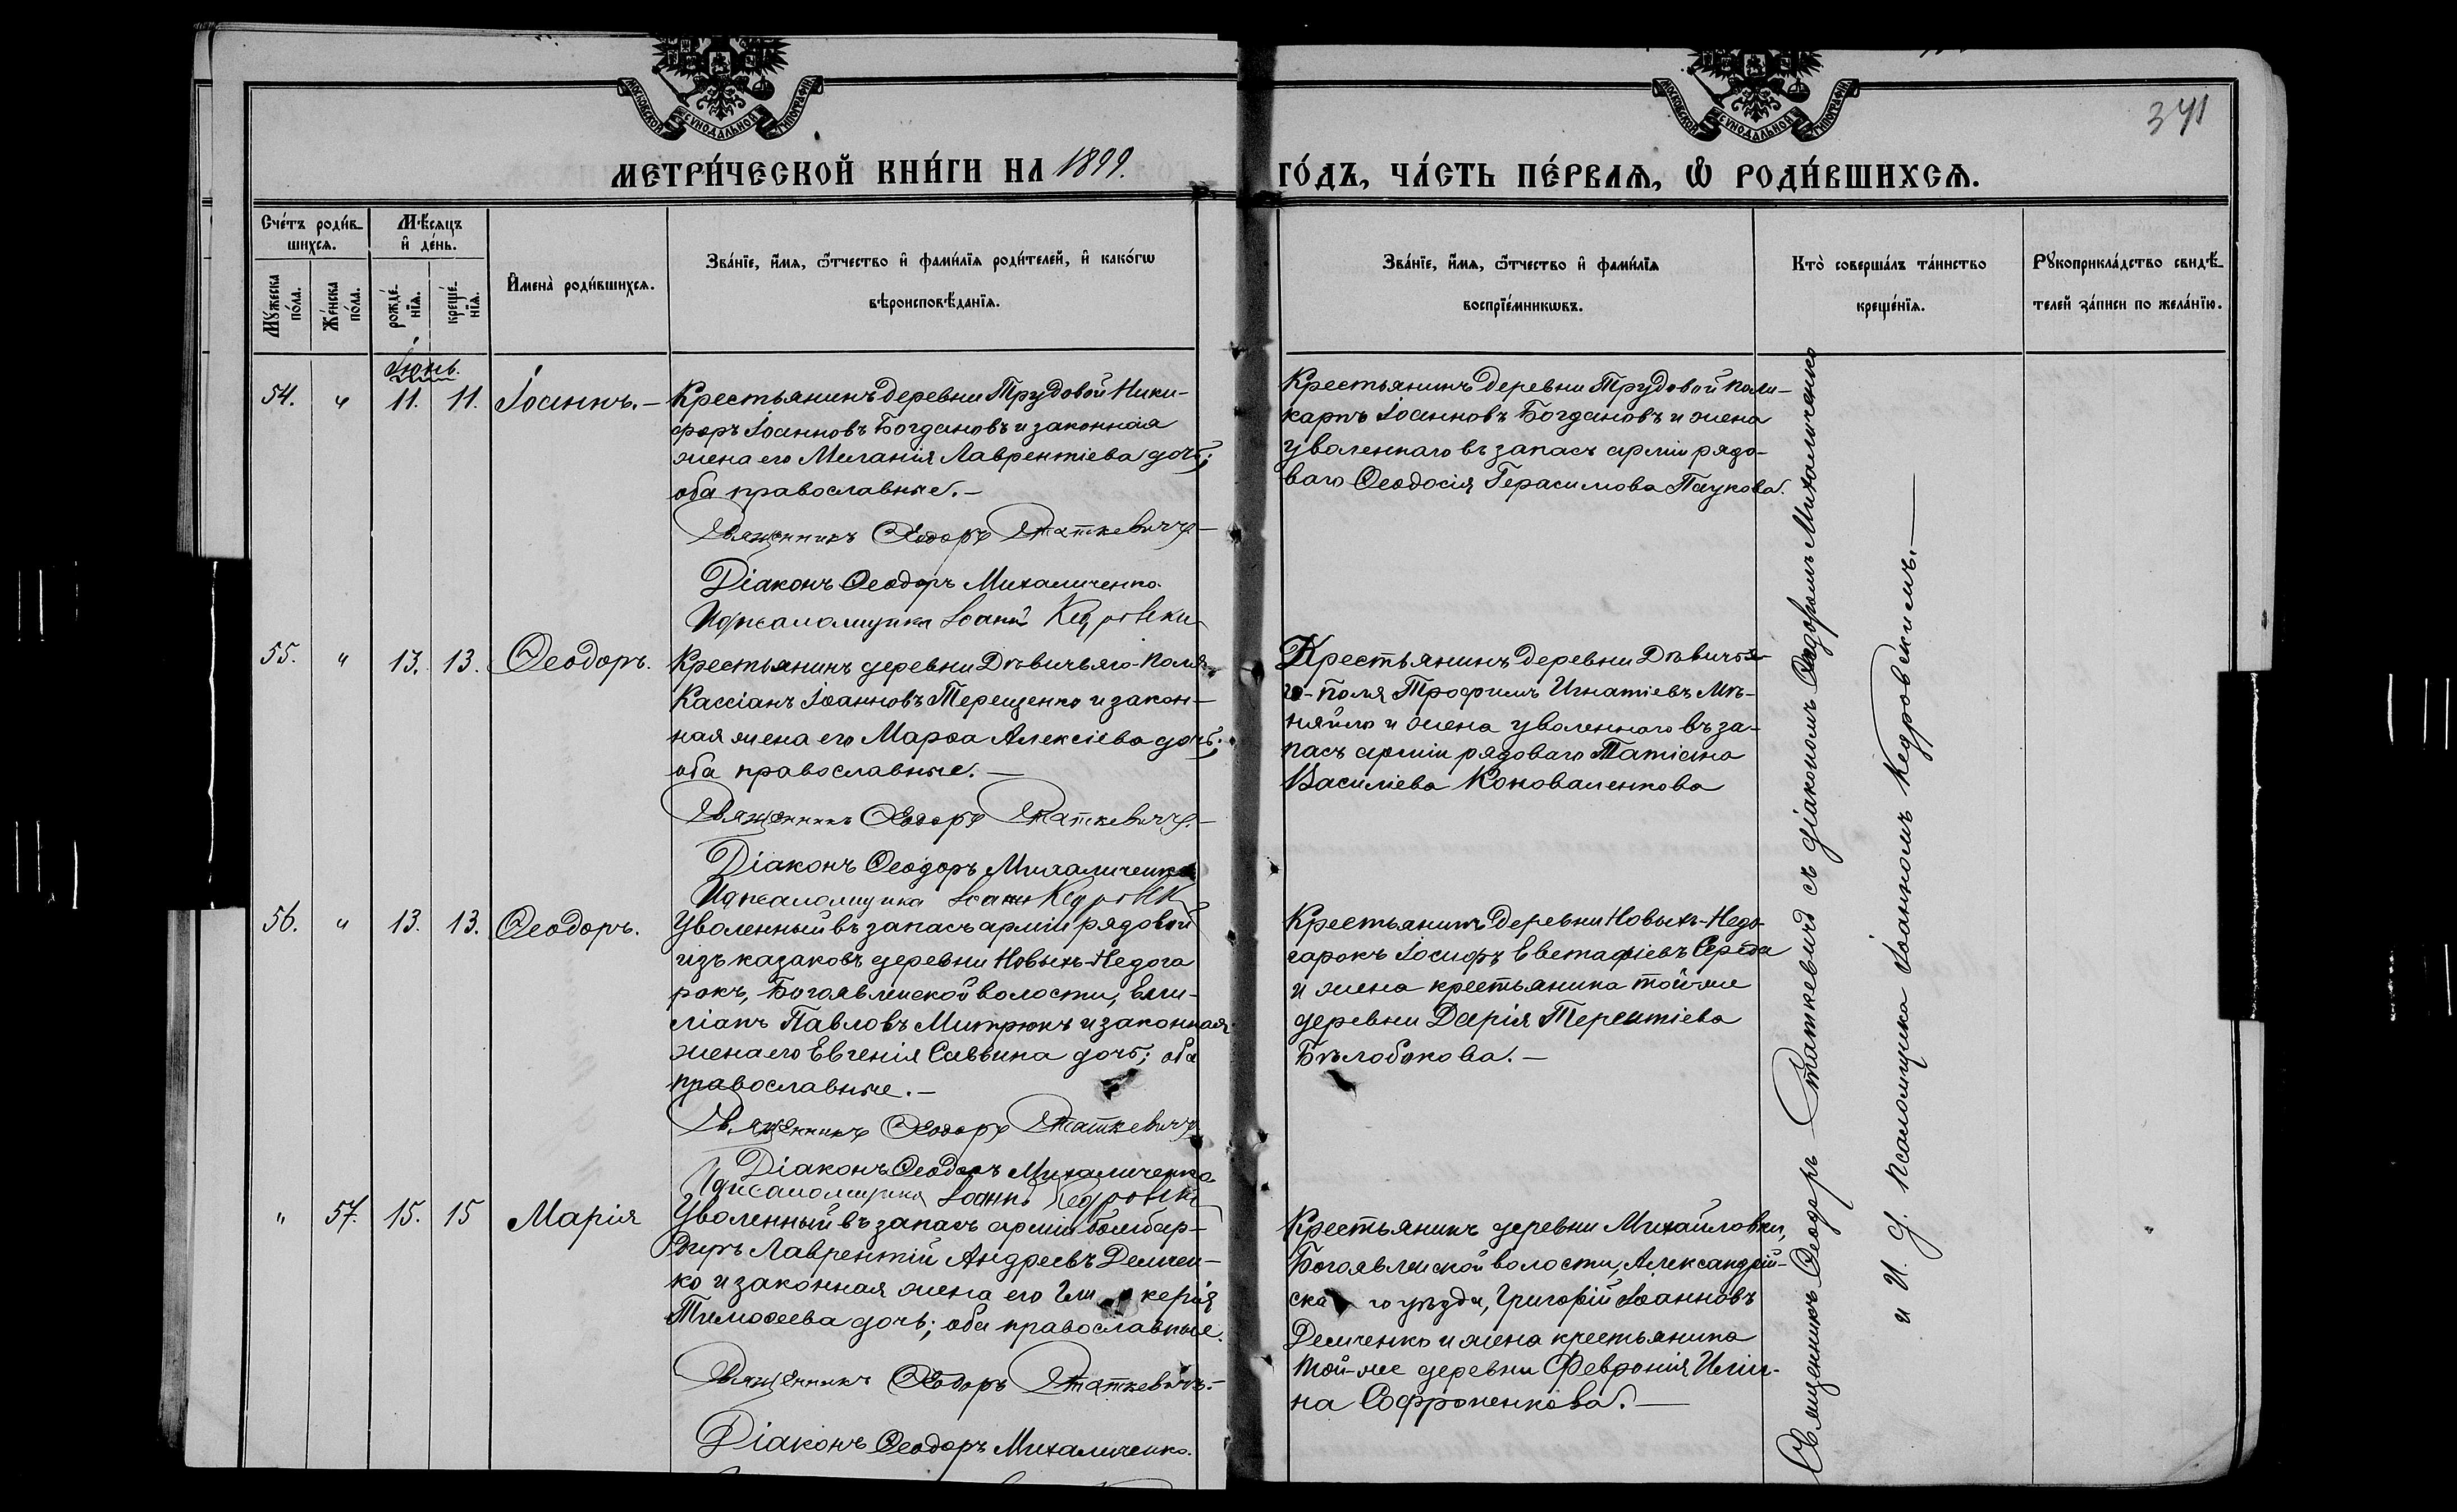 МОСКОВСКОЙ СѴНОДАЛЬНОЙ ТИПОГРАФІИ
МОСКОВСКОЙ СѴНОДАЛЬНОЙ ТИПОГРАФІИ
341
МЕТРИ́ЧЕСКОЙ КНИ́ГИ НА 1899.
ГО́ДЪ, ЧА́СТЬ ПЕ́РВАѦ, Ѡ҆ РОДИ́ВШИХСѦ.
Сче́тъ роди́в-
шихсѧ.
Мꙋ́жеска
по́ла.
Же́нска
по́ла.
Мѣ́сѧцъ
и҆ де́нь.
рожде́-
нїѧ.
креще́-
нїѧ.
И҆мена̀ роди́вшихсѧ.
Зва́нїе, и҆́мѧ, ѻ҆́тчество и҆ фами́лїѧ роди́телей, и҆ како́гѡ
вѣроисповѣ́данїѧ.
Зва́нїе, и҆́мѧ, ѻ҆́тчество и҆ фами́лїѧ
воспрїе́мникѡвъ.
Кто̀ соверша́лъ та́инство
креще́нїѧ.
Рꙋкоприкла́дство свидѣ́-
телей за́писи по жела́нїю.
Іюнь.
54. " 11. 11. Іоаннъ.—
Крестьянинъ деревни Трудовой Ники-
форъ Іоанновъ Богдановъ и законная
жена его Меланія Лаврентіева дочь;
оба православные.—
Священникъ Ѳеодоръ Статкевичъ—
Діаконъ Ѳеодоръ Михаличенко
И д псаломщика Іоаннъ Кедровски
Крестьянинъ деревни Трудовой Поли-
карпъ Іоанновъ Богдановъ и жена
уволеннаго въ запасъ арміи рядо-
ваго Ѳеодосія Герасимова Паукова.
55. " 13. 13. Ѳеодоръ.
Крестьянинъ деревни Дѣвичьяго-Поля
Кассіанъ Іоанновъ Терещенко и закон-
ная жена его Марѳа Алексіева дочь;
оба православные.—
Священникъ Ѳеодоръ Статкевичъ.—
Діаконъ Ѳеодоръ Михаличенко
И д псаломщика Іоаннъ Кедровск
Крестьянинъ деревни Дѣвичья-
го-Поля Трофимъ Игнатіевъ Мѣ-
няйло и жена уволеннаго въ за-
пасъ арміи рядоваго Татіана
Василіева Коноваленкова
56. " 13. 13. Ѳеодоръ.
Уволенный въ запасъ арміи рядовой
изъ казаковъ деревни Новыхъ-Недога
рокъ, Богоявленской волости, Еми-
ліанъ Павловъ Митрюкъ и законная
жена его Евгенія Саввина дочь; оба
православные.—
Священникъ Ѳеодоръ Статкевичъ
Діаконъ Ѳеодоръ Михаличенко
И д псаломщика Іоаннъ Кедровски
Крестьянинъ деревни Новыхъ-Недо-
гарокъ Іосифъ Евстафіевъ Середа
и жена крестьянина той-же
деревни Дарія Терентіева
Бѣлобокова.—
" 57. 15. 15 Марія
Уволенный въ запасъ арміи бомбар-
диръ Лаврентій Андреевъ Демчен-
ко и законная жена его Гли керія
Тимоѳеева дочь; оба православные.
Священникъ Ѳеодоръ Статкевичъ.—
Діаконъ Ѳеодоръ Михаличенко.
Крестьянинъ деревни Михайловки,
Богоявленской волости, Александрій-
ска го уѣзда, Григорій Іоанновъ
Демченко и жена крестьянина
той-же деревни Февронія Иліи-
на Софроненкова.—
Священникъ Ѳеодоръ Статкевичъ съ діакономъ Ѳеодоромъ Михаличенко
и И. д. псаломщика Іоанномъ Кедровскимъ.—